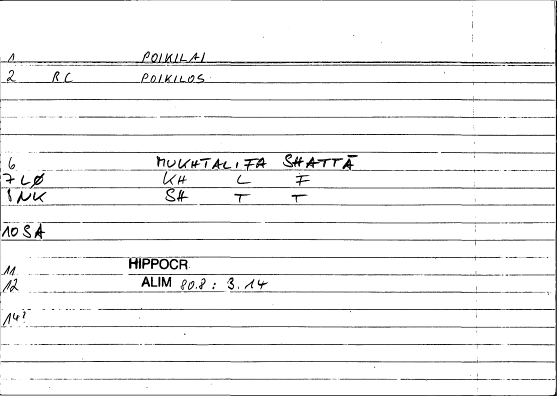 1 POIKILAI
2 RC POIKILOS
6 MUKHTALIFA SHATTĀ
7 LØ KH L F
8 NK SH T T
10 SA
11 HIPPOCR.
12 ALIM 80.8 : 3.14
14?